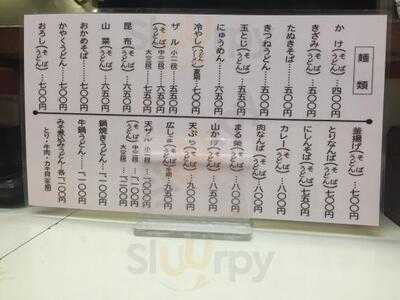 麺類
かけ（そば うどん）…四〇〇円
きざみ（そば うどん）…五五〇円
たぬきそば…五五〇円
きつねうどん…五五〇円
玉とじ（そば うどん）…五五〇円
にゅうめん…六五〇円
冷やし（そば うどん）
ザル（そば うどん）小二段 五五〇円
中三段 六五〇円
大四段 七五〇円
昆布（そば うどん）…六五〇円
山菜（そば うどん）…六五〇円
おかめそば…七〇〇円
かやくうどん…七〇〇円
おろし（そば うどん）…七〇〇円
釜揚げうどん…七〇〇円
とりなんば（そば うどん）…七〇〇円
にしんそば…七五〇円
カレー（そば うどん）…八〇〇円
肉なんば（そば うどん）…八〇〇円
まる栄（そば うどん）…八〇〇円
山かけ（そば うどん）…八〇〇円
天ぷら（そば うどん）…九〇〇円
広しま（そば うどん）…九五〇円
天ザル（そば うどん）小二段
中三段
大四段
鍋焼きうどん…一一〇〇円
牛鍋うどん…一一〇〇円
みそ煮込みうどん…各一一〇〇円
Sluurpy